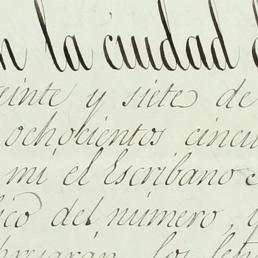 n la ciudad d
einte y siete de
ochocientos cincu
mi el Escribano
ico del número, y